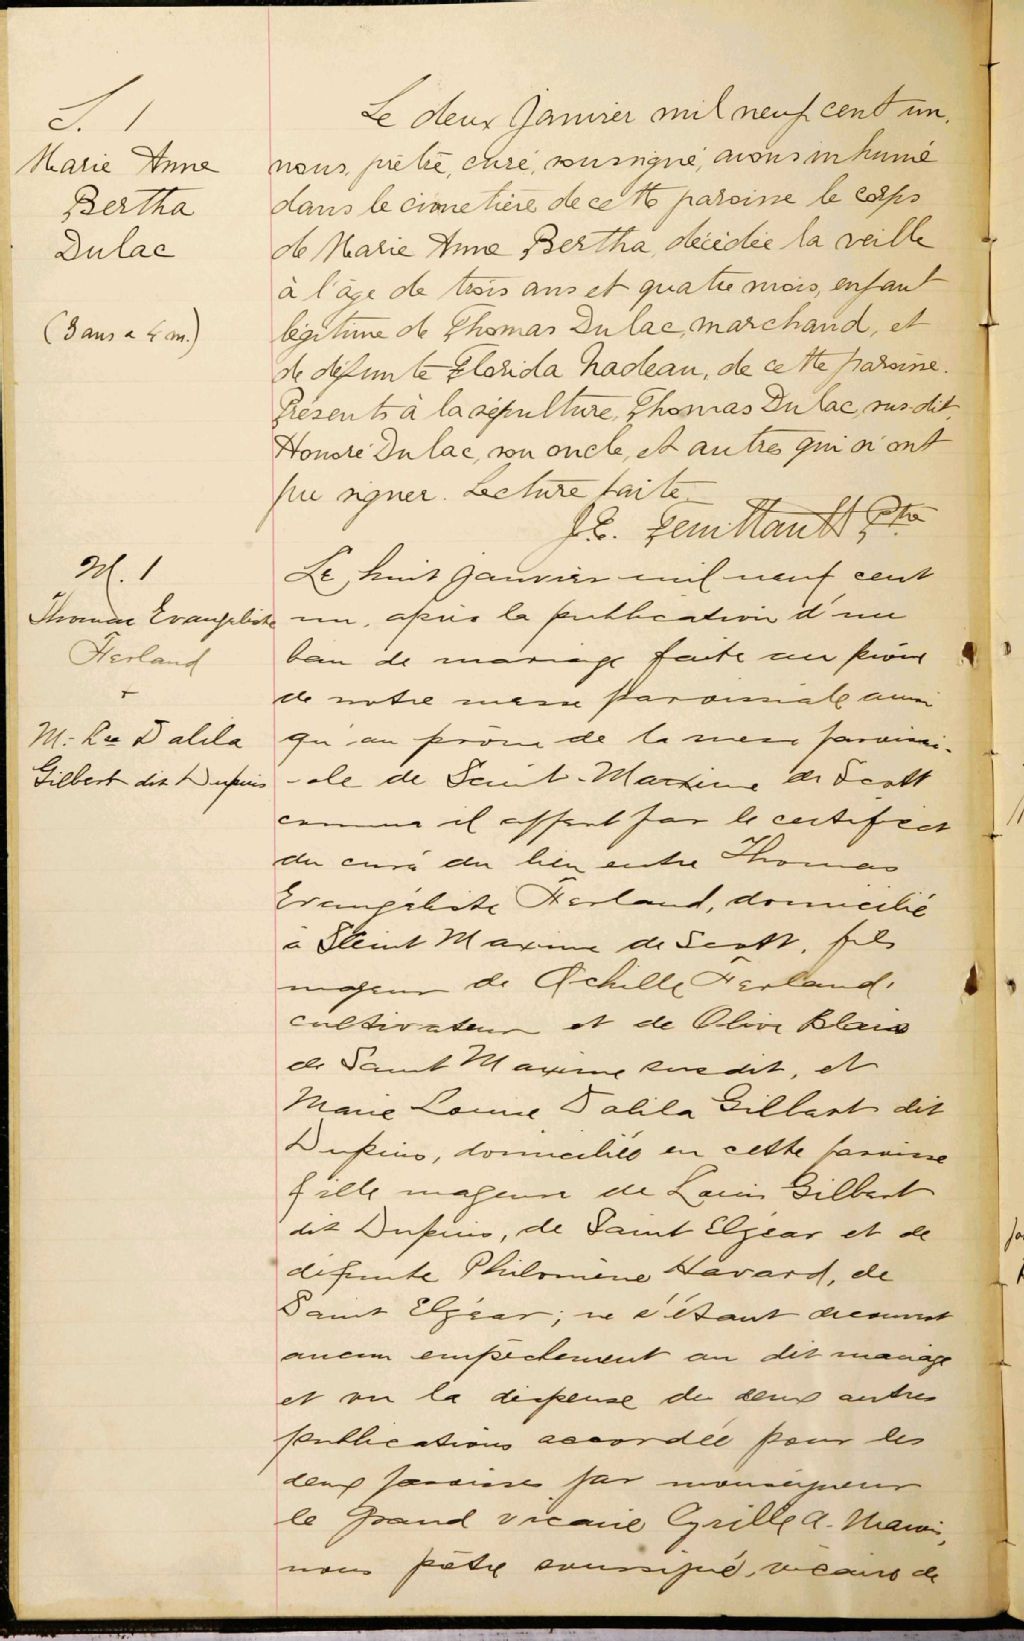 S. 1
Marie Anne
Bertha
Dulac
(3 ans & 4 m.)
Le deux janvier mil neuf cent un,
nous, prêtre, curé, soussigné, avons inhumé
dans le cimetière de cette paroisse le corps
de Marie Anne Bertha, décédée la veille
à l'âge de trois ans et quatre mois, enfant
légitime de Thomas Dulac, marchand, et
de défunte Florida Nadeau, de cette paroisse.
Présents à la sépulture, Thomas Dulac, susdit,
Honoré Dulac, son oncle, et autres qui n'ont
pu signer. Lecture faite.
J. E. Feuiltault Ptre
M. 1
Thomas Evangeliste
Ferland
+
M.- Lse Dalila
Gilbert dit Dupuis
Le huit janvier mil neuf cent
un, après la publication d'un
ban de mariage faite au prône
de notre messe paroissiale ainsi
qu'au prône de la messe paroissi-
-ale de Saint-Maxime de Scott
comme il appert par le certificat
du curé du lieu entre Thomas
Evangéliste Ferland, domicilié
à Saint Maxime de Scott, fils
majeur de Achille Ferland,
cultivateur et de Olive Blais
de Saint Maxime susdit, et
Marie Louise Dalila Gilbert dit
Dupuis, domiciliée en cette paroisse
fille majeure de Louis Gilbert
dit Dupuis, de Saint Elzéar et de
défunte Philomène Havard, de
Saint Elzéar; ne s'étant découvert
aucun empêchement au dit mariage
et vu la dispense de deux autres
publications accordée pour les
deux paroisses par monseigneur
le grand vicaire Cyrille A. Marois,
nous prêtre soussigné, vicaire de